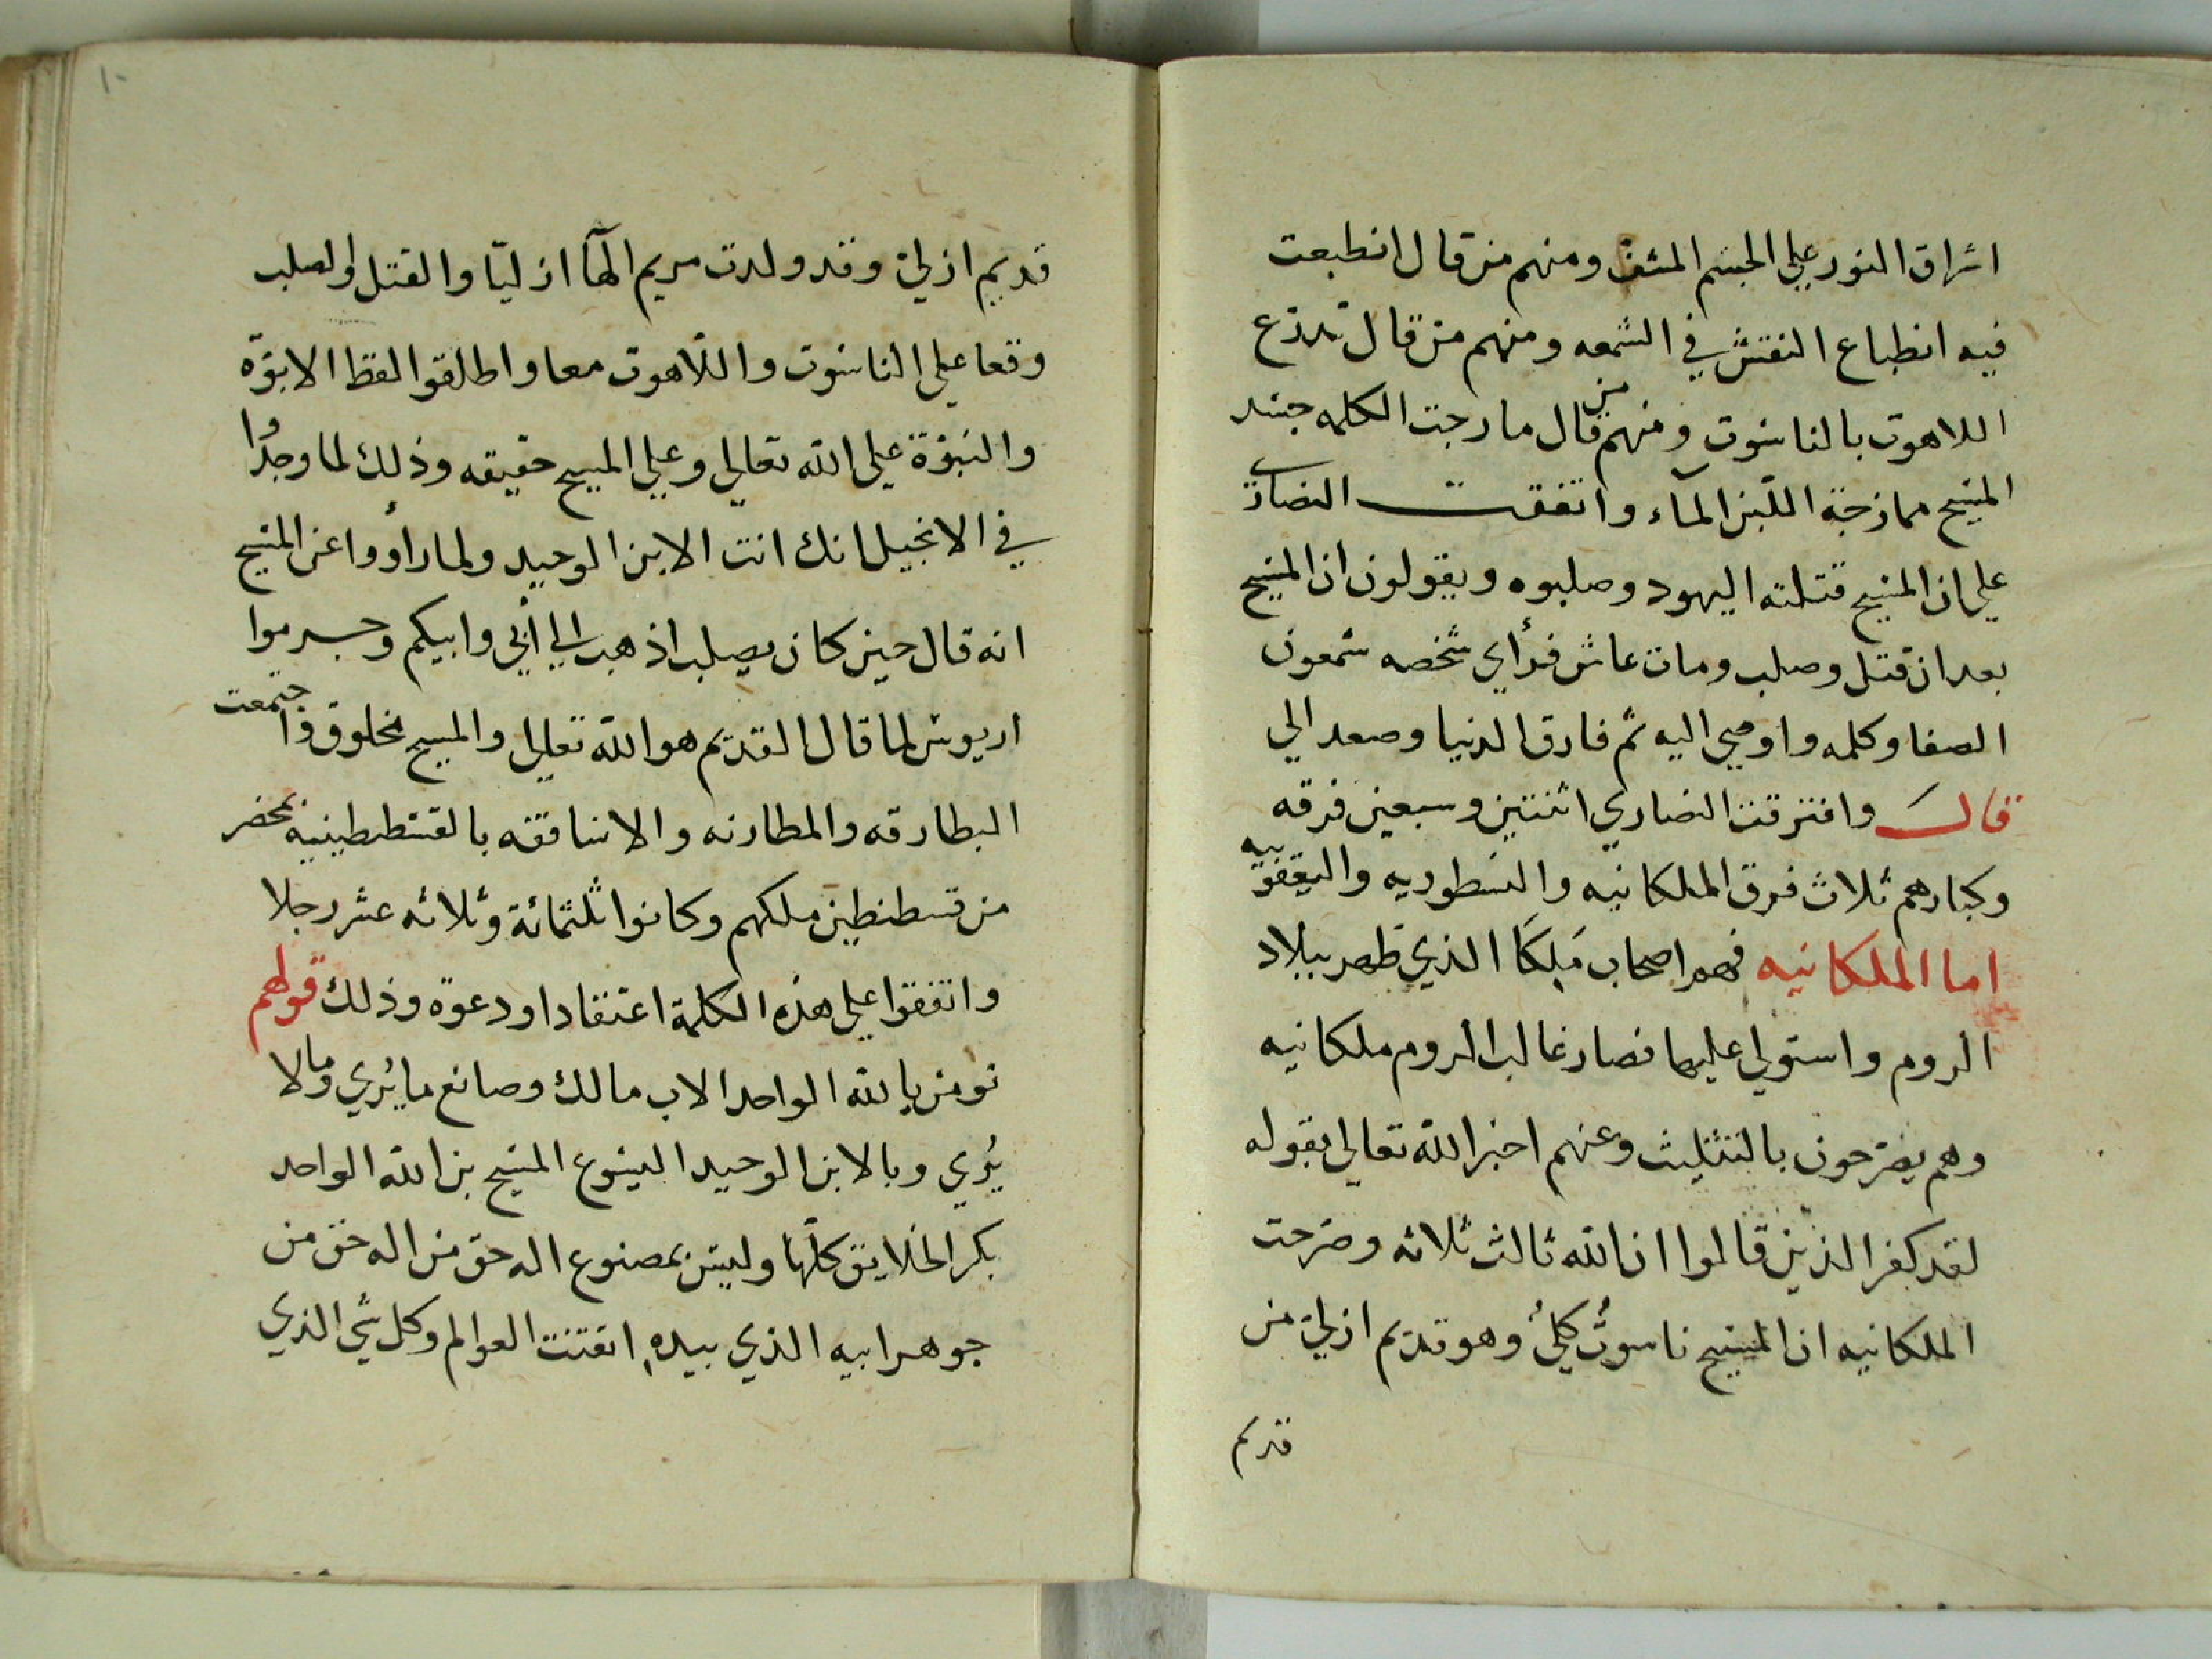 اشراق النور علي الجسم المشف ومنهم من قال انطبعت
فيه انطباع النقش في الشمعه ومنهم من قال تدرّع
اللاهوت بالناسوت ومنهم من قال مارجت الكلمه جسد
المسيح ممازجة اللّبن المآء واتفقت النصارى
علي ان المسيح قتلته اليهود وصلبوه ويقولون ان المسيح
بعد ان قتل وصلب ومات عاش فرأي شخصه شمعون
الصفا وكلمه واوصي اليه ثم فارق الدنيا وصعد الي
قال وافترقت النصاري اثنتين وسبعين فرقه
وكبارهم ثلاث فرق الملكانيه والنسطوريه واليعقوبيه
اما الملكانيه فهم اصحاب مَلِكَا الذي ظهر ببلاد
الروم واستولي عليها فصار غالب الروم ملكانيه
وهم يصرّحون بالتثليث وعنهم اخبر الله تعالي بقوله
لقد كفر الذين قالوا ان الله ثالث ثلاثه وصرّحت
الملكانيه ان المسيح ناسوتٌ كليٌ وهو قديم ازليّ من
قديم
١٠
قديم ازليّ وقد ولدت مريم الهًا ازليّا والقتل والصلب
وقعا علي الناسوت واللّاهوت معا واطلقوا لفظ الابوّة
والنبوّة علي الله تعالي وعلي المسيح حقيقه وذلك لما وجدُوا
في الانجيل انك انت الابن الوحيد ولما رأووا عن المسيح
انه قال حين كان يصلب اذهب الي أبي وابيكم وحرموا
اريوش لما قال القديم هو الله تعالي والمسيح مخلوق واجتمعت
البطارقه والمطارنه والاساقفه بالقسطنطينيه بمحضر
من قسطنطين ملكهم وكانوا ثلثمائة وثلاثه عشر رجلا
واتفقوا علي هذه الكلمة اعتقادا ودعوة وذلك قولهم
نومن بالله الواحد الاب مالك وصانع ما يُري وما لا
يُري وبالابن الوحيد اليسوع المسيح بن الله الواحد
بكر الخلايق كلّها وليس بمصنوع اله حق من اله حق من
جوهر ابيه الذي بيدهِ اتقنت العوالم وكل شي الذي